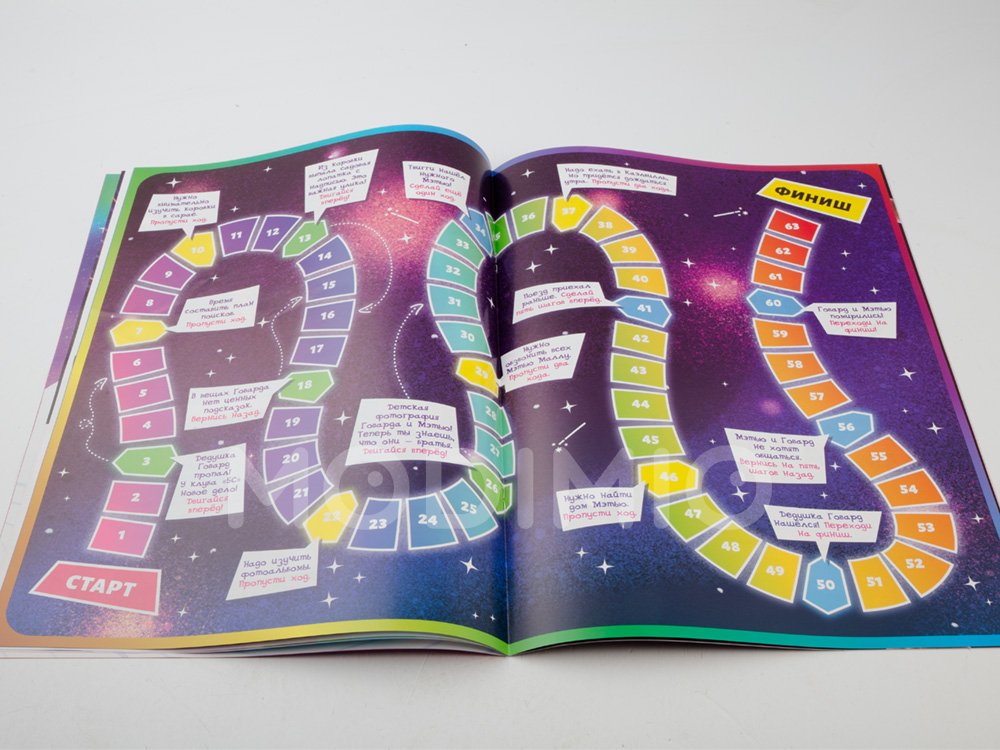 СТАРТ
1
2
3
Дедушка
Говард
пропал!
У клуба «5С»
Новое дело!
Двигайся
вперёд!
4
5
6
7
Время
составить план
поисков.
Пропусти ход.
8
9
10
Нужно
внимательно
изучить коробки
в сарае.
Пропусти ход.
11
12
13
Из коробки
выпала садовая
лопатка с
надписью. Это
важная улика!
Двигайся
вперёд!
14
15
16
17
18
В вещах Говарда
Нет ценных
подсказок.
Вернись Назад.
19
20
21
22
Надо изучить
фотоальбомы.
Пропусти ход.
23
24
25
26
Детская
фотография
Говарда и Мэтью!
Теперь ты знаешь,
что они – братья.
Двигайся вперёд!
27
28
29
Нужно
обзвонить всех
Мэтью Маллу.
Пропусти два
хода.
30
31
32
33
34
Твигги Нашёл
Нужного
Мэтью!
Сделай ещё
один ход.
36
37
Надо ехать в Каэлвилль,
Но придётся дождаться
утра. Пропусти два хода.
38
39
40
41
Поезд приехал
раньше. Сделай
пять шагов вперёд.
42
43
44
45
46
Нужно Найти
дом Мэтью.
Пропусти ход.
47
48
49
50
Дедушка Говард
Нашёлся! Переходи
На финиш.
51
52
53
54
55
56
Мэтью и Говард
Не хотят
общаться.
Вернись На пять
шагов Назад.
57
58
59
60
Говард и Мэтью
помирились!
Переходи На
финиш!
61
62
63
ФИНИШ
MODIMIO